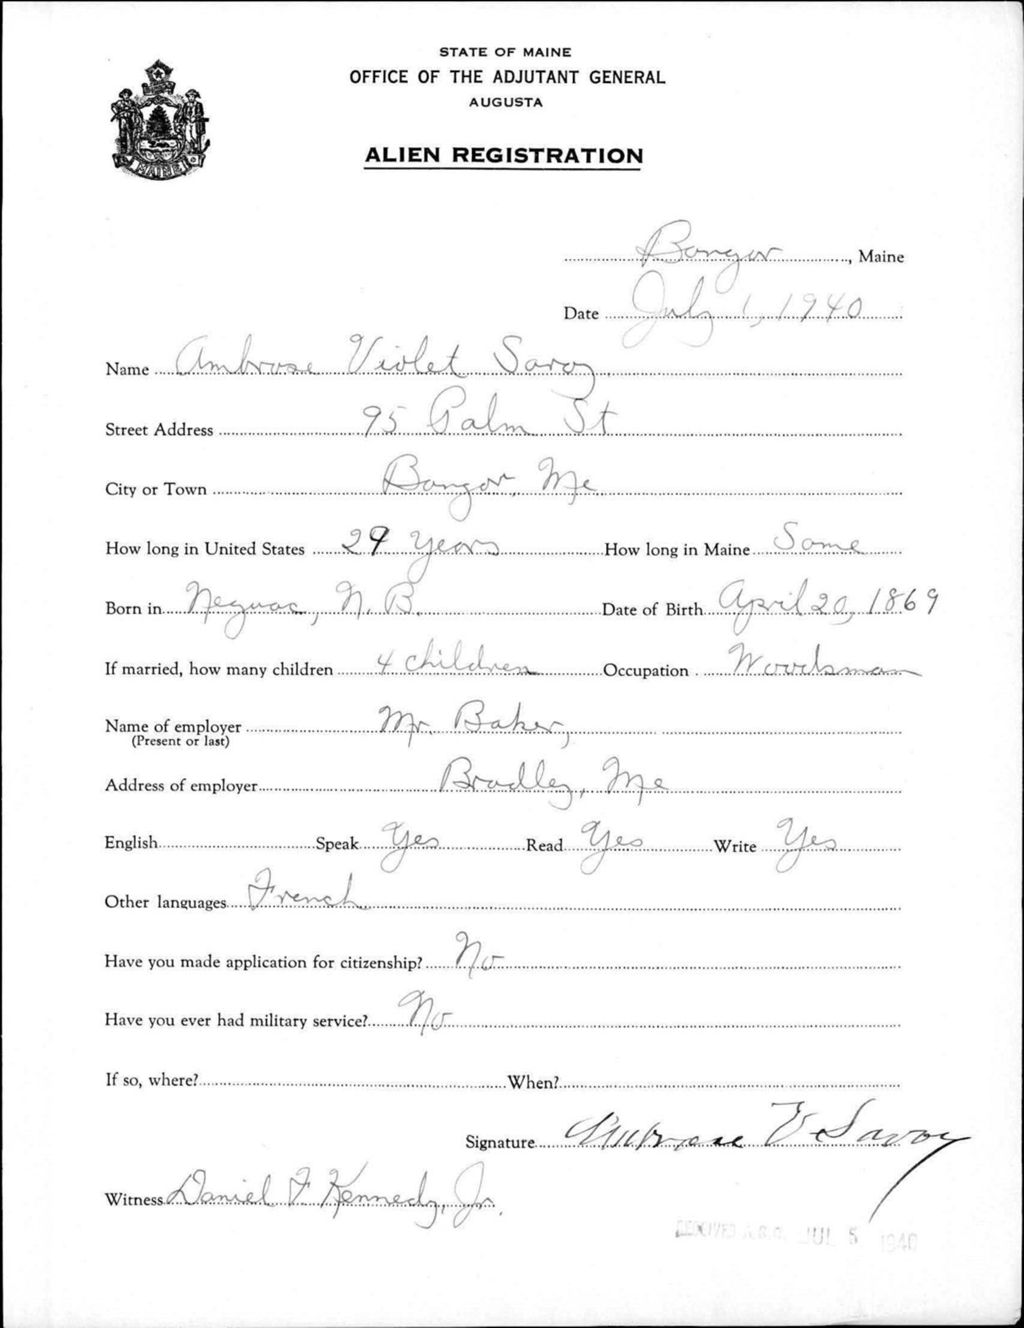 STATE OF MAINE
OFFICE OF THE ADJUTANT GENERAL
AUGUSTA
ALIEN REGISTRATION
MAINE
Bangor, Maine
Date July 1, 1940
Name Ambrose Violet Savoy
Street Address 95 Palm St
City or Town Bangor, Me
How long in United States 29 Years How long in Maine Same
Born in Neguac, N.B. Date of Birth April 20, 1869
If married, how many children 4 children Occupation Woodsman
Name of employer Mr. Baker,
(Present or last)
Address of employer Bradley, Me
English Speak Yes Read Yes Write Yes
Other languages French
Have you made application for citizenship? No
Have you ever had military service? No
If so, where? When?
Signature Ambrose V Savoy
Witness Daniel F Kennedy, Jr.
RECEIVED A.G.O. JUL 5 1940